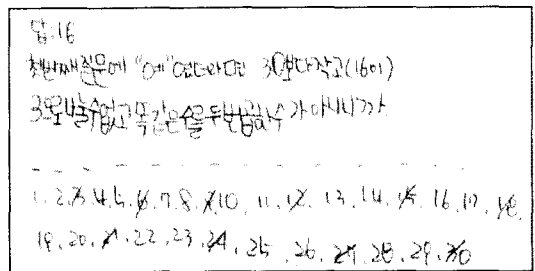 답:16
첫번째질문에 "예"였더라면 30보다작고(16이)
3으로나눌수없고똑같은수를두번곱한수가아니니까
1, 2, 3, 4, 5, 6, 7, 8, 9, 10, 11, 12, 13, 14, 15, 16, 17, 18,
19, 20, 21, 22, 23, 24, 25, 26, 27, 28, 29, 30